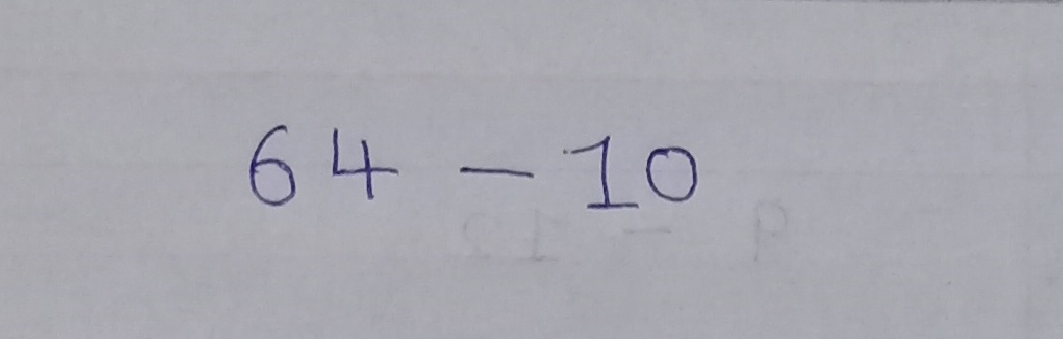 64 - 10